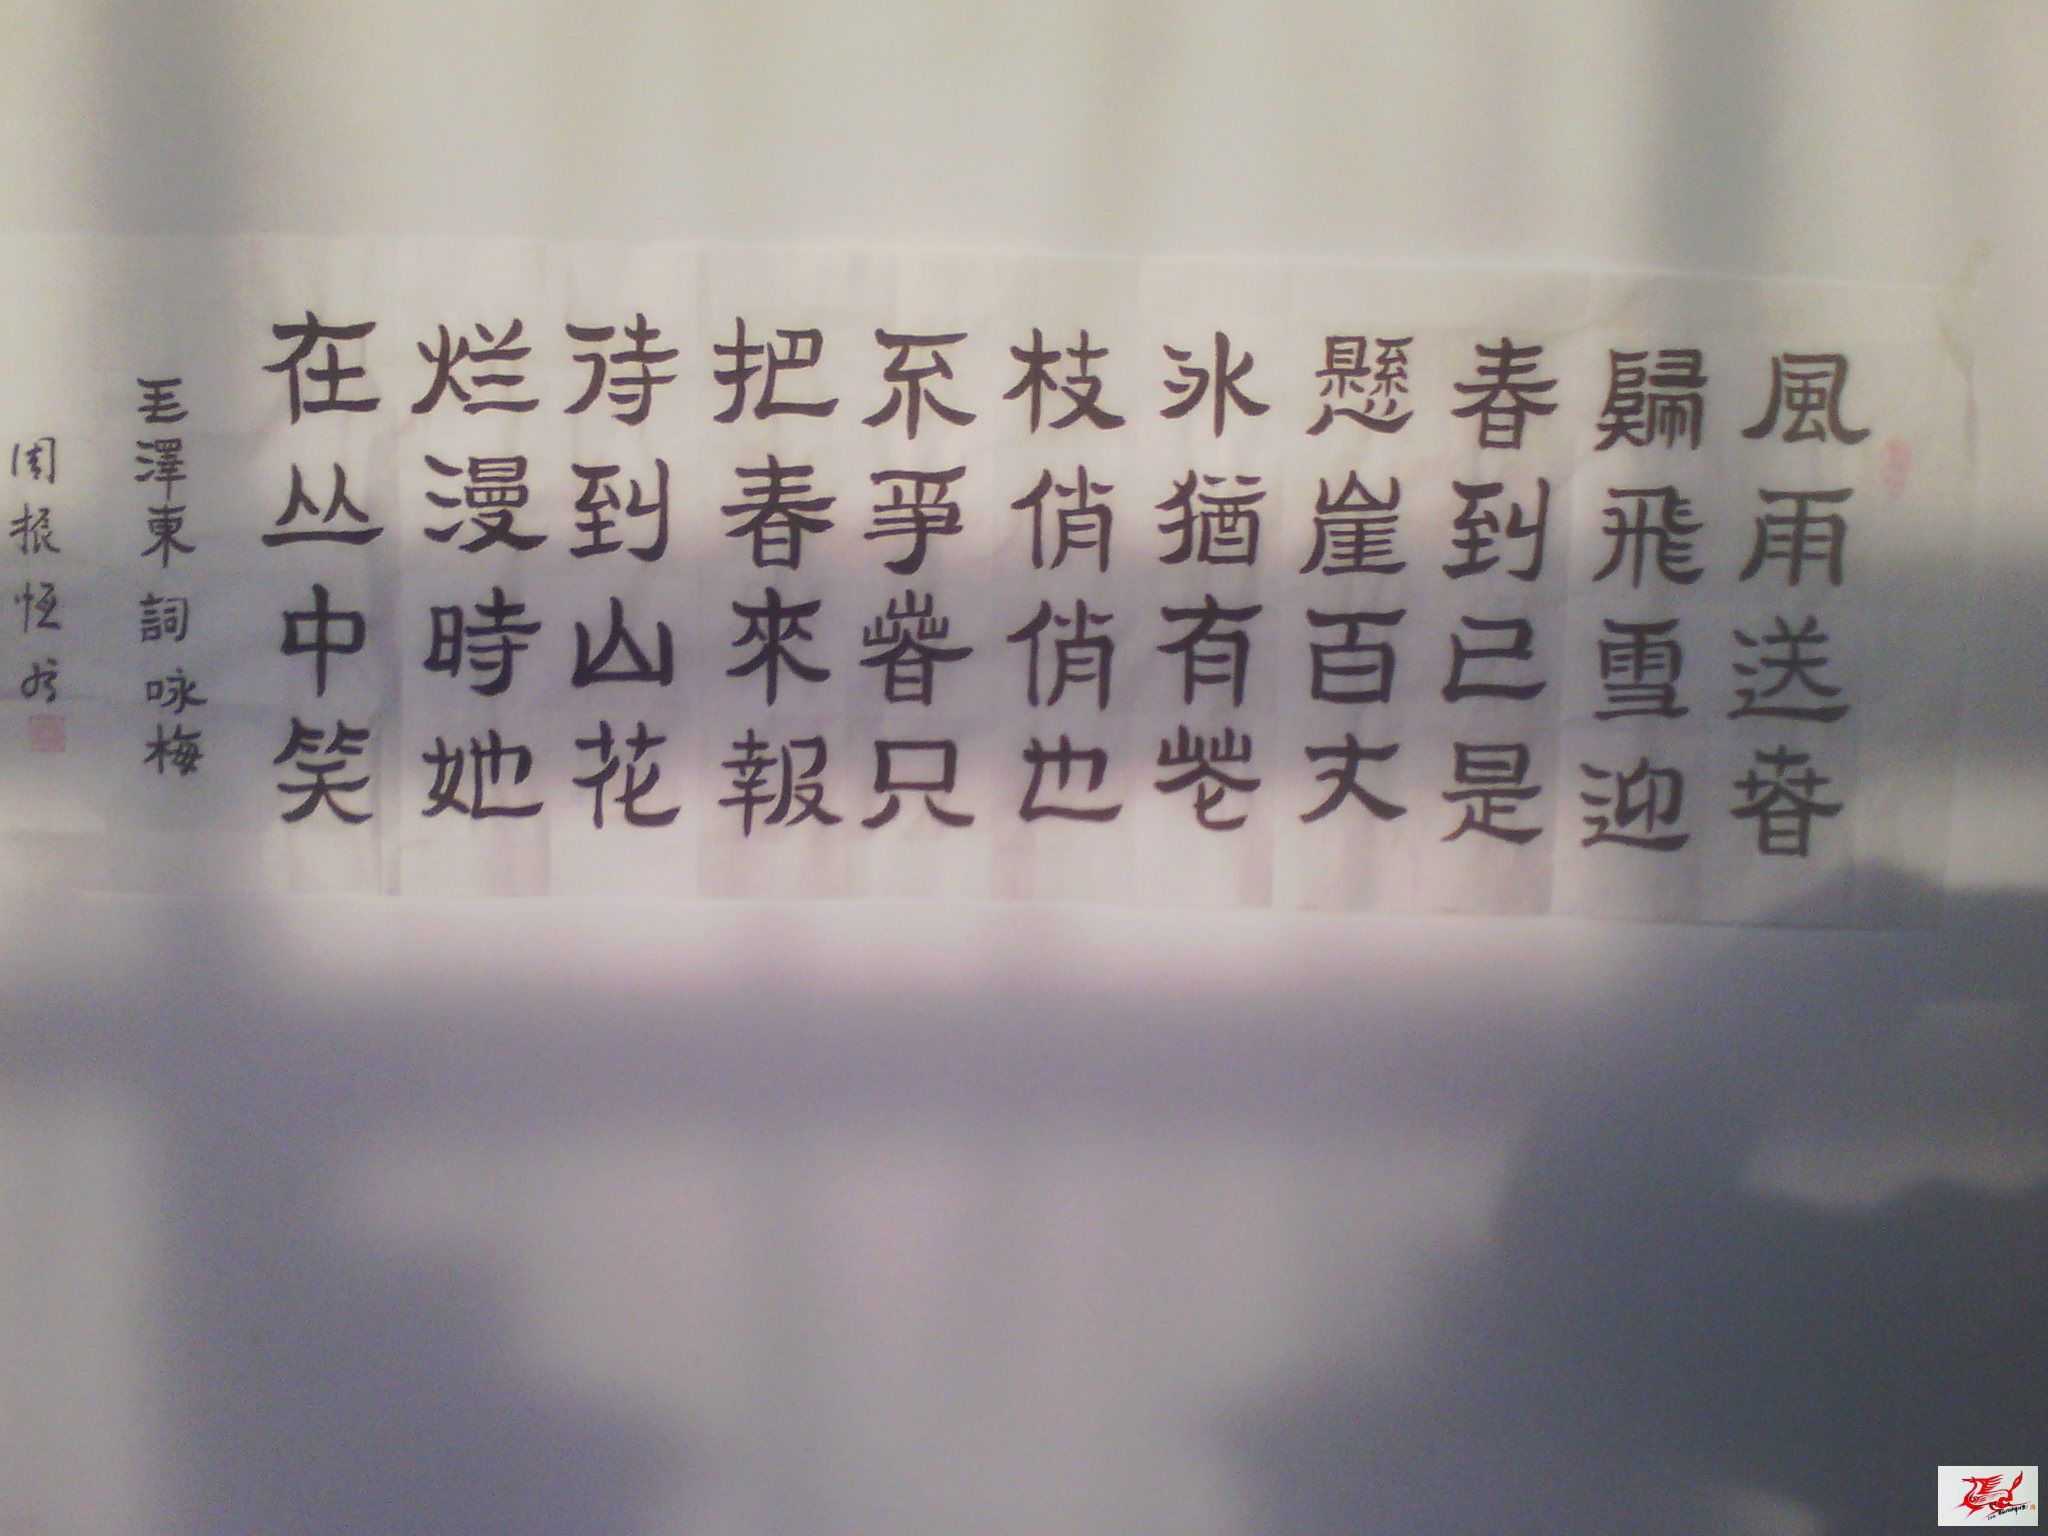 風雨送春
歸飛雪迎
春到已是
懸崖百丈
冰猶有花
枝俏俏也
不爭春只
把春來報
待到山花
烂漫時她
在丛中笑
毛澤東詞咏梅
周振恒书